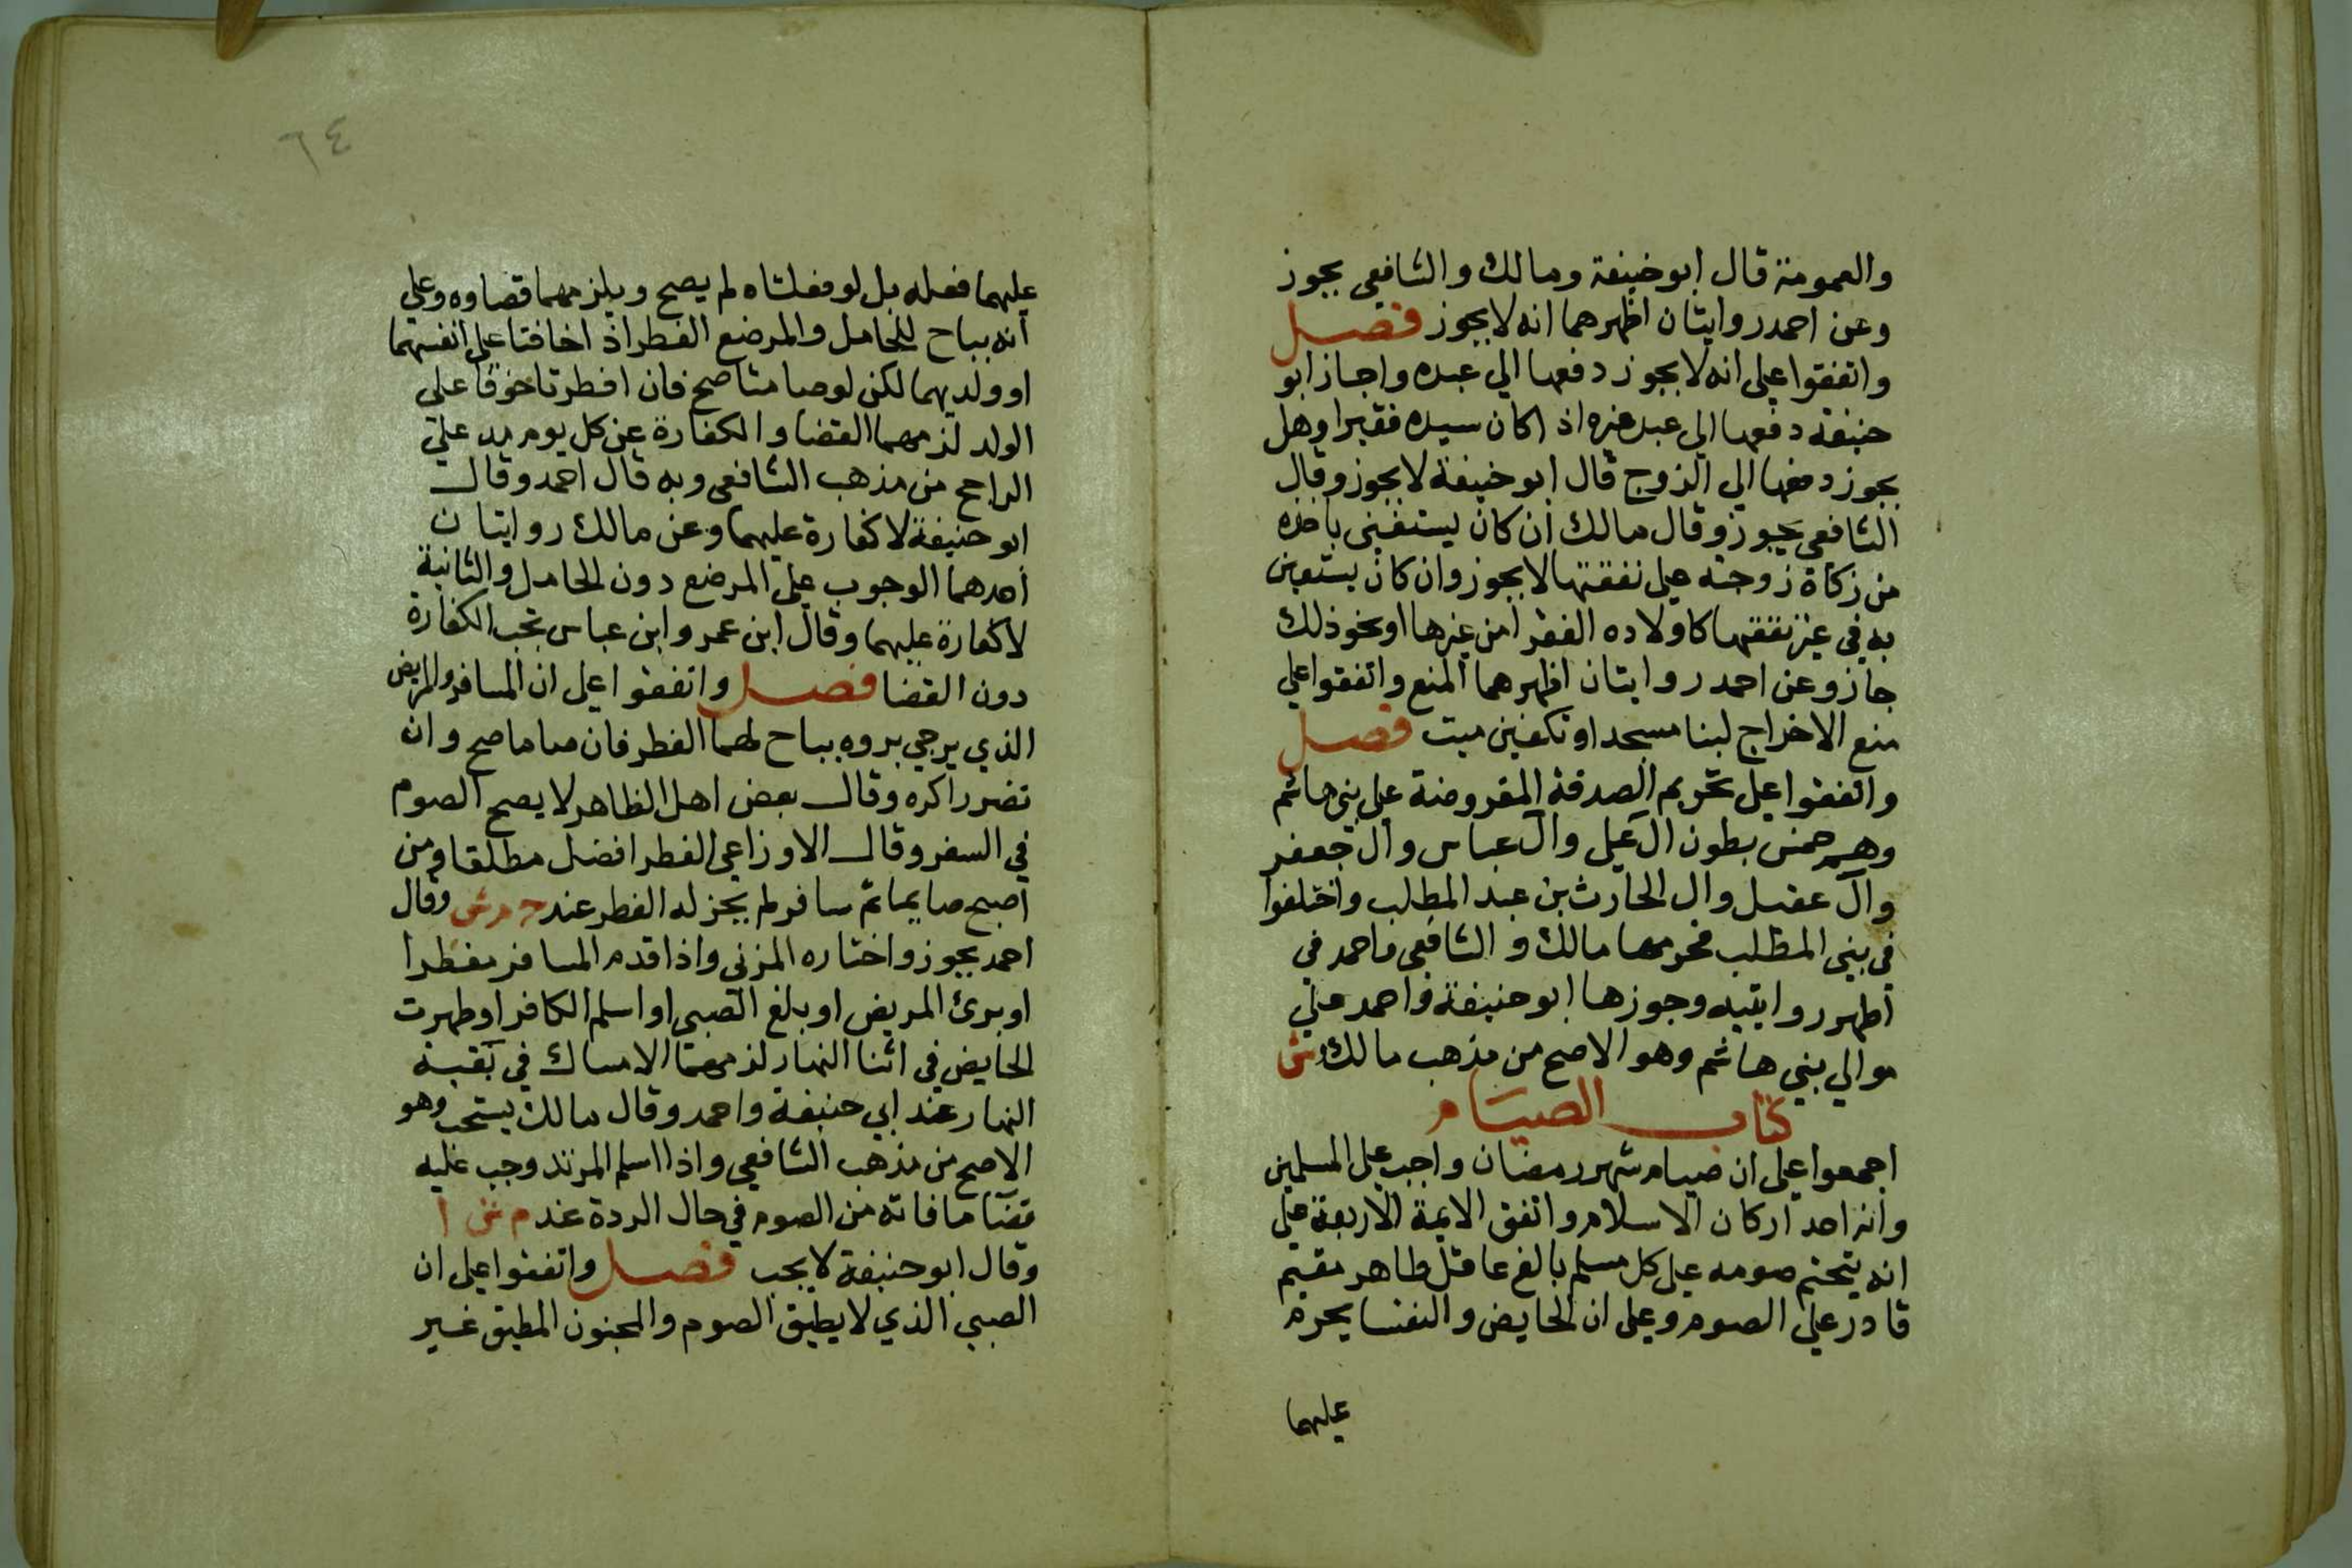 والعمومة قال ابو حنيفة ومالك والشافعي يجوز
وعن احمد روايتان اظهرهما انه لا يجوز فصل
واتفقوا على انه لا يجوز دفعها الي عبده واجاز ابو
حنيفة دفعها الي عبد غيره اذا كان سيده فقيرا وهل
يجوز دفعها الي الزوج قال ابو حنيفة لا يجوز وقال
الشافعي يجوز وقال مالك ان كان يستغني باخذه
من زكاة زوجته على نفقتها لا يجوز وان كان يستعين
به في غير نفقتها كاولاده الفقرا من غيرها او نحو ذلك
جاز وعن احمد روايتان اظهرهما المنع واتفقوا علي
منع الاخراج لبنا مسجد او تكفين ميت فصل
واتفقوا على تحريم الصدقة المفروضة علي بني هاشم
وهم خمس بطون ال علي وال عباس وال جعفر
وال عقيل وال الحارث بن عبد المطلب واختلفوا
في بني المطلب فحرمها مالك والشافعي واحمد في
اظهر روايتيه وجوزها ابو حنيفة واحمد علي
موالي بني هاشم وهو الاصح من مذهب مالك وش
كتاب الصيام
اجمعوا على ان صيام شهر رمضان واجب على المسلمين
وانه احد اركان الاسلام واتفق الايمة الاربعة على
انه يتحتم صومه على كل مسلم بالغ عاقل طاهر مقيم
قادر علي الصوم وعلى ان الحايض والنفسا يحرم
عليهما
٦٤
عليهما فعله بل لو فعلتاه لم يصح ويلزمهما قضاوه وعلي
انه يباح للحامل والمرضع الفطر اذا خافتا على انفسهما
او ولديهما لكن لو صامتا صح فان افطرتا خوفا على
الولد لزمهما القضا والكفارة عن كل يوم مد علي
الراجح من مذهب الشافعي وبه قال احمد وقال
ابو حنيفة لا كفارة عليهما وعن مالك روايتان
احدهما الوجوب على المرضع دون الحامل والثانية
لا كفارة عليهما وقال ابن عمر وابن عباس تجب الكفارة
دون القضا فصل واتفقوا على ان المسافر والمريض
الذي يرجي بروه يباح لهما الفطر فان صاما صح وان
تضررا كره وقال بعض اهل الظاهر لا يصح الصوم
في السفر وقال الاوزاعي الفطر افضل مطلقا ومن
اصبح صايما ثم سافر لم يجز له الفطر عند ح م ش وقال
احمد يجوز واختاره المزني واذا قدم المسافر مفطرا
او برئ المريض او بلغ الصبي او اسلم الكافر او طهرت
الحايض في اثنا النهار لزمهما الامساك في بقية
النهار عند ابي حنيفة واحمد وقال مالك يستحب وهو
الاصح من مذهب الشافعي واذا اسلم المرتد وجب عليه
قضا ما فاته من الصوم في حال الردة عند م ش ا
وقال ابو حنيفة لا يجب فصل واتفقوا على ان
الصبي الذي لا يطيق الصوم والمجنون المطبق غير